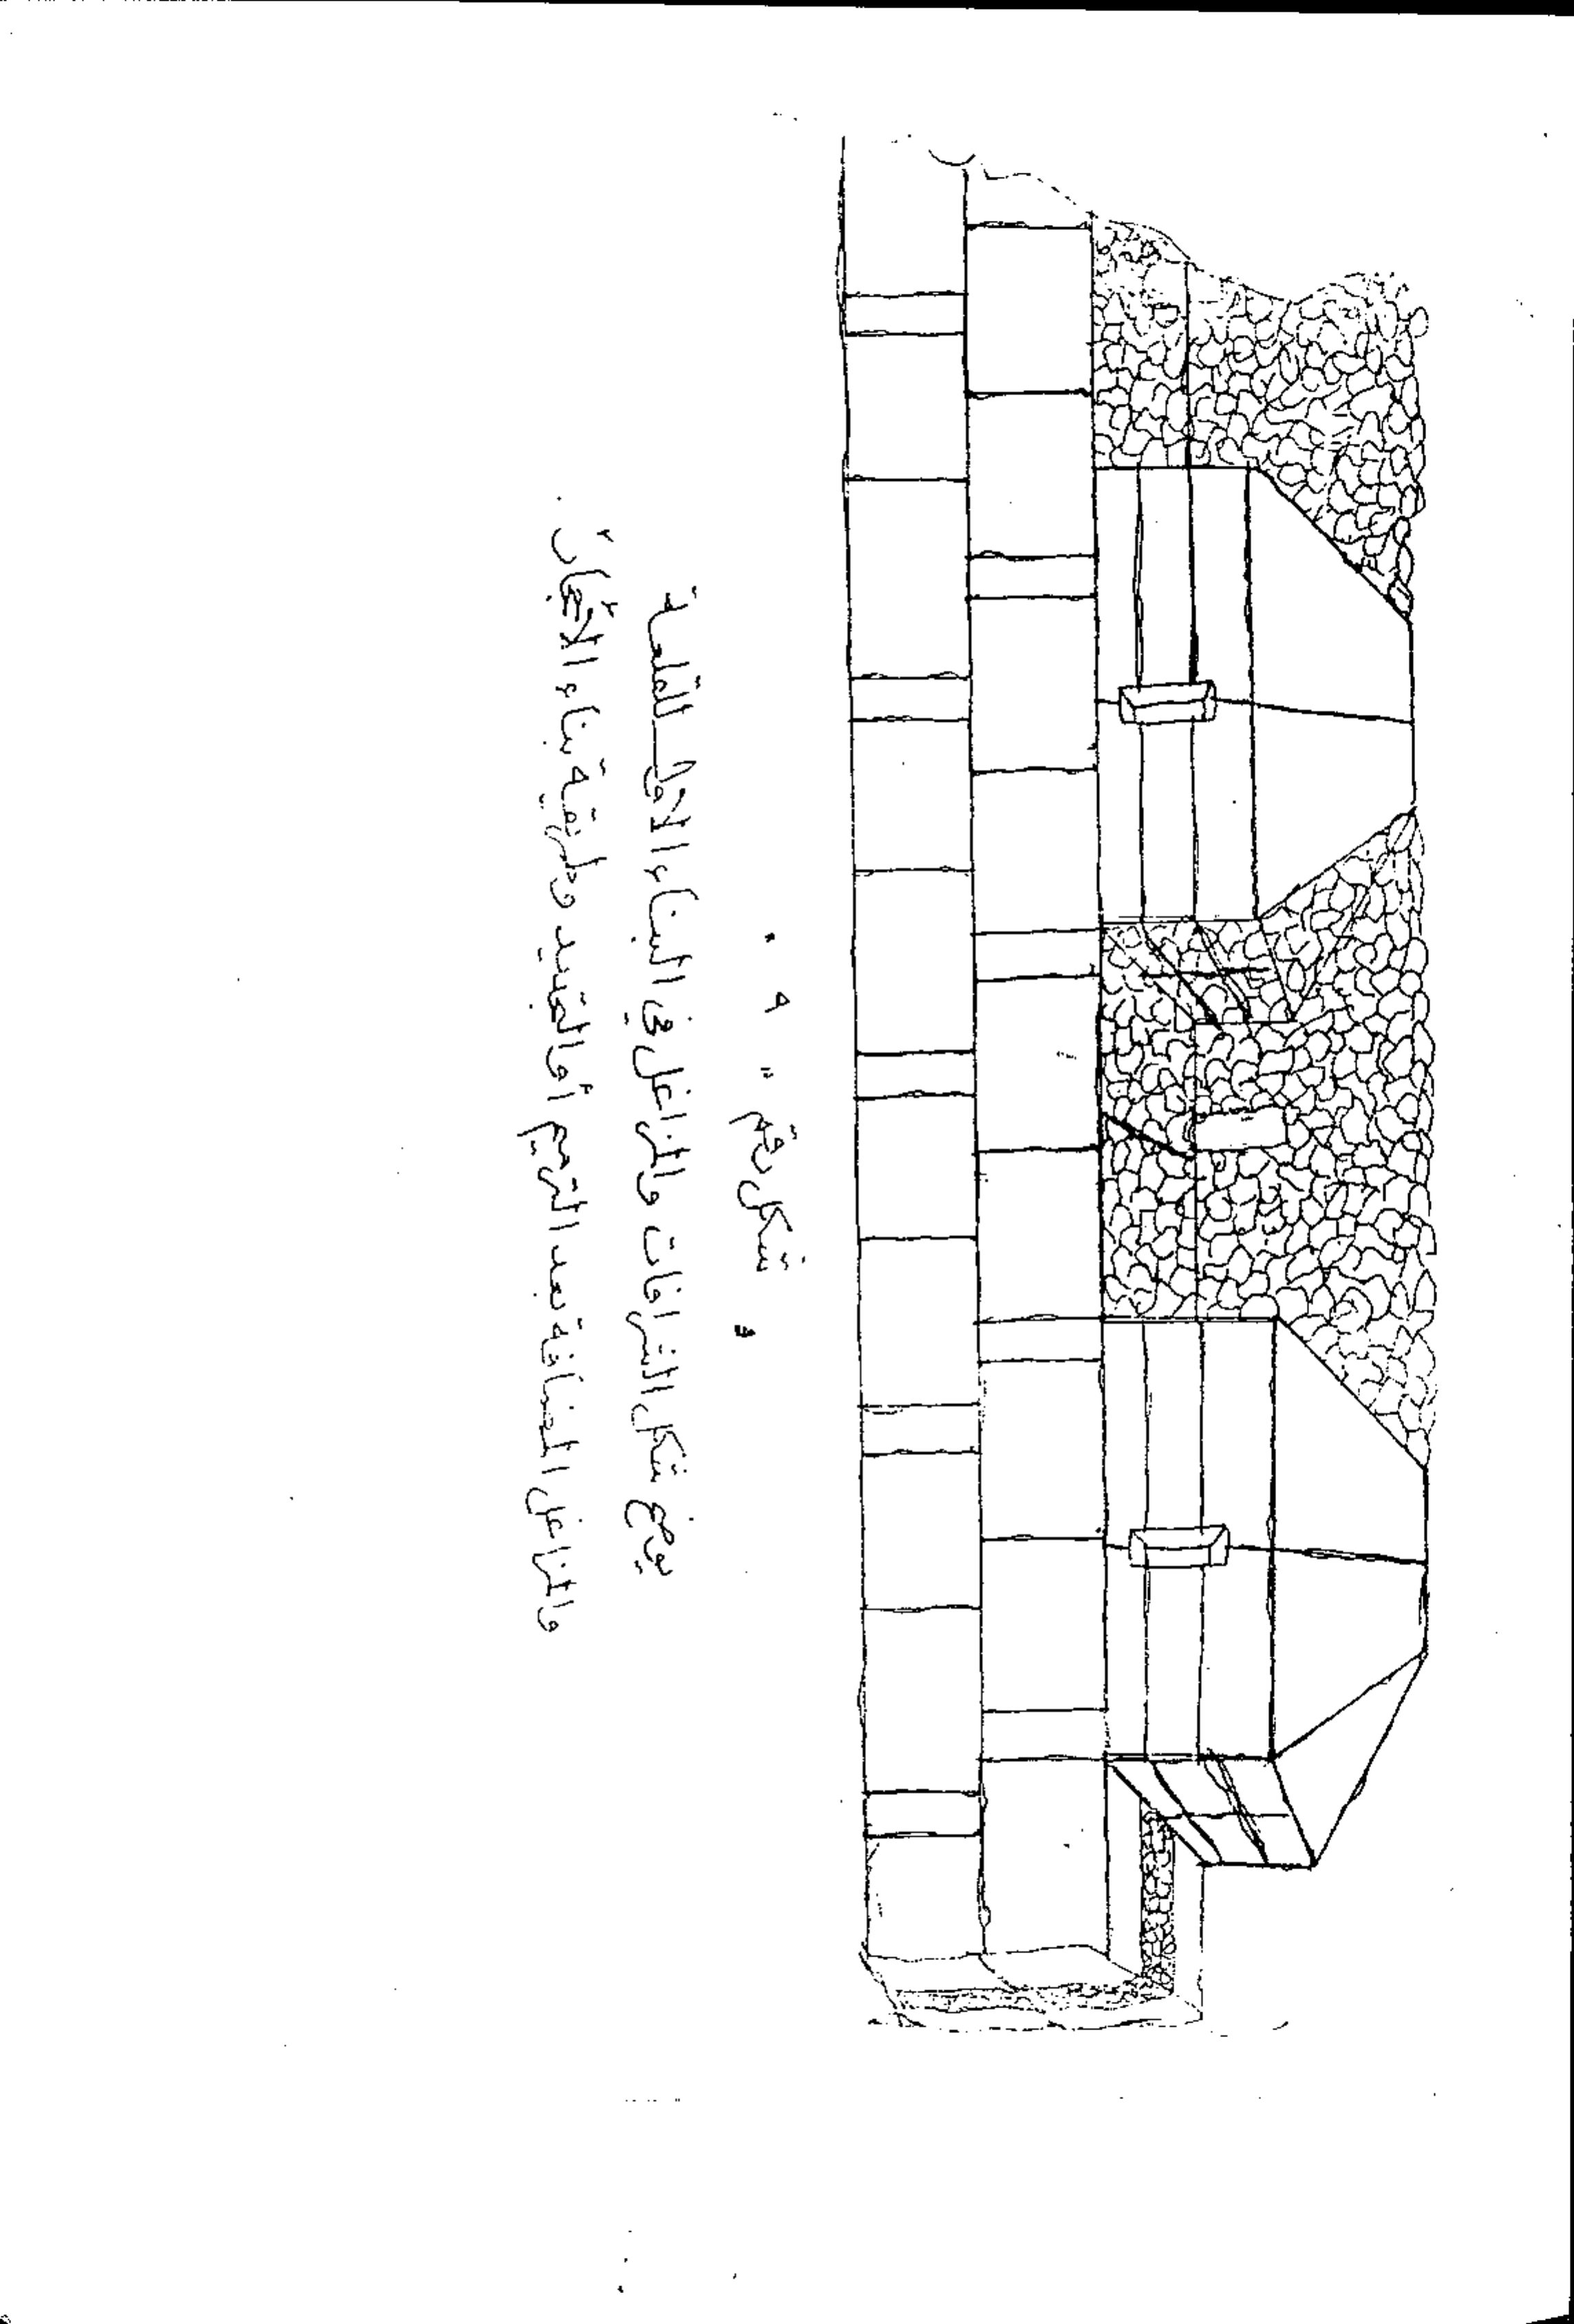 شكل رقم " ٩ "
يوضح شكل الشرافات والمزاغل في البناء الاول للقلعة
والمزاغل المضافة بعد الترميم أو التجديد وطريقة بناء الأحجار .